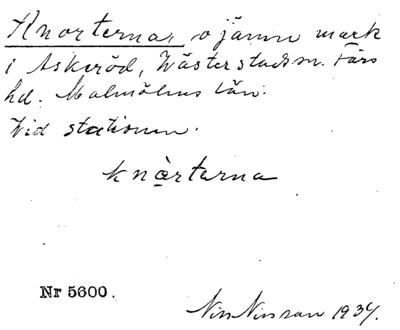 Knorterna, ojämn mark
i Askeröd, Wästerstads sn. Färs
hd. Malmöhus län.
Vid stationen.
knårterna
Nr 5600.
Nils Nilsson 1934.